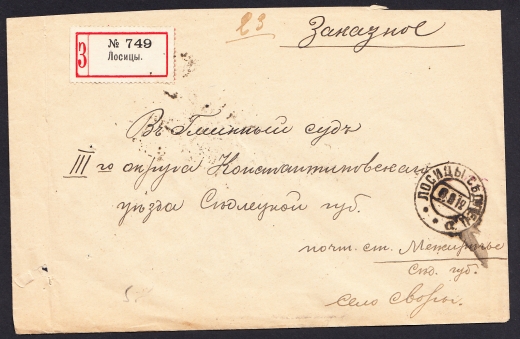 23
Заказное
З
№ 749
Лосицы.
Въ Гминный судъ
III го округа Константиновскаго
уѣзда Сѣдлецкой губ.
ЛОСИЦЫ СѢДЛЕЦ.
почт. ст. Межирѣчье
Сѣд. губ.
село Своры.